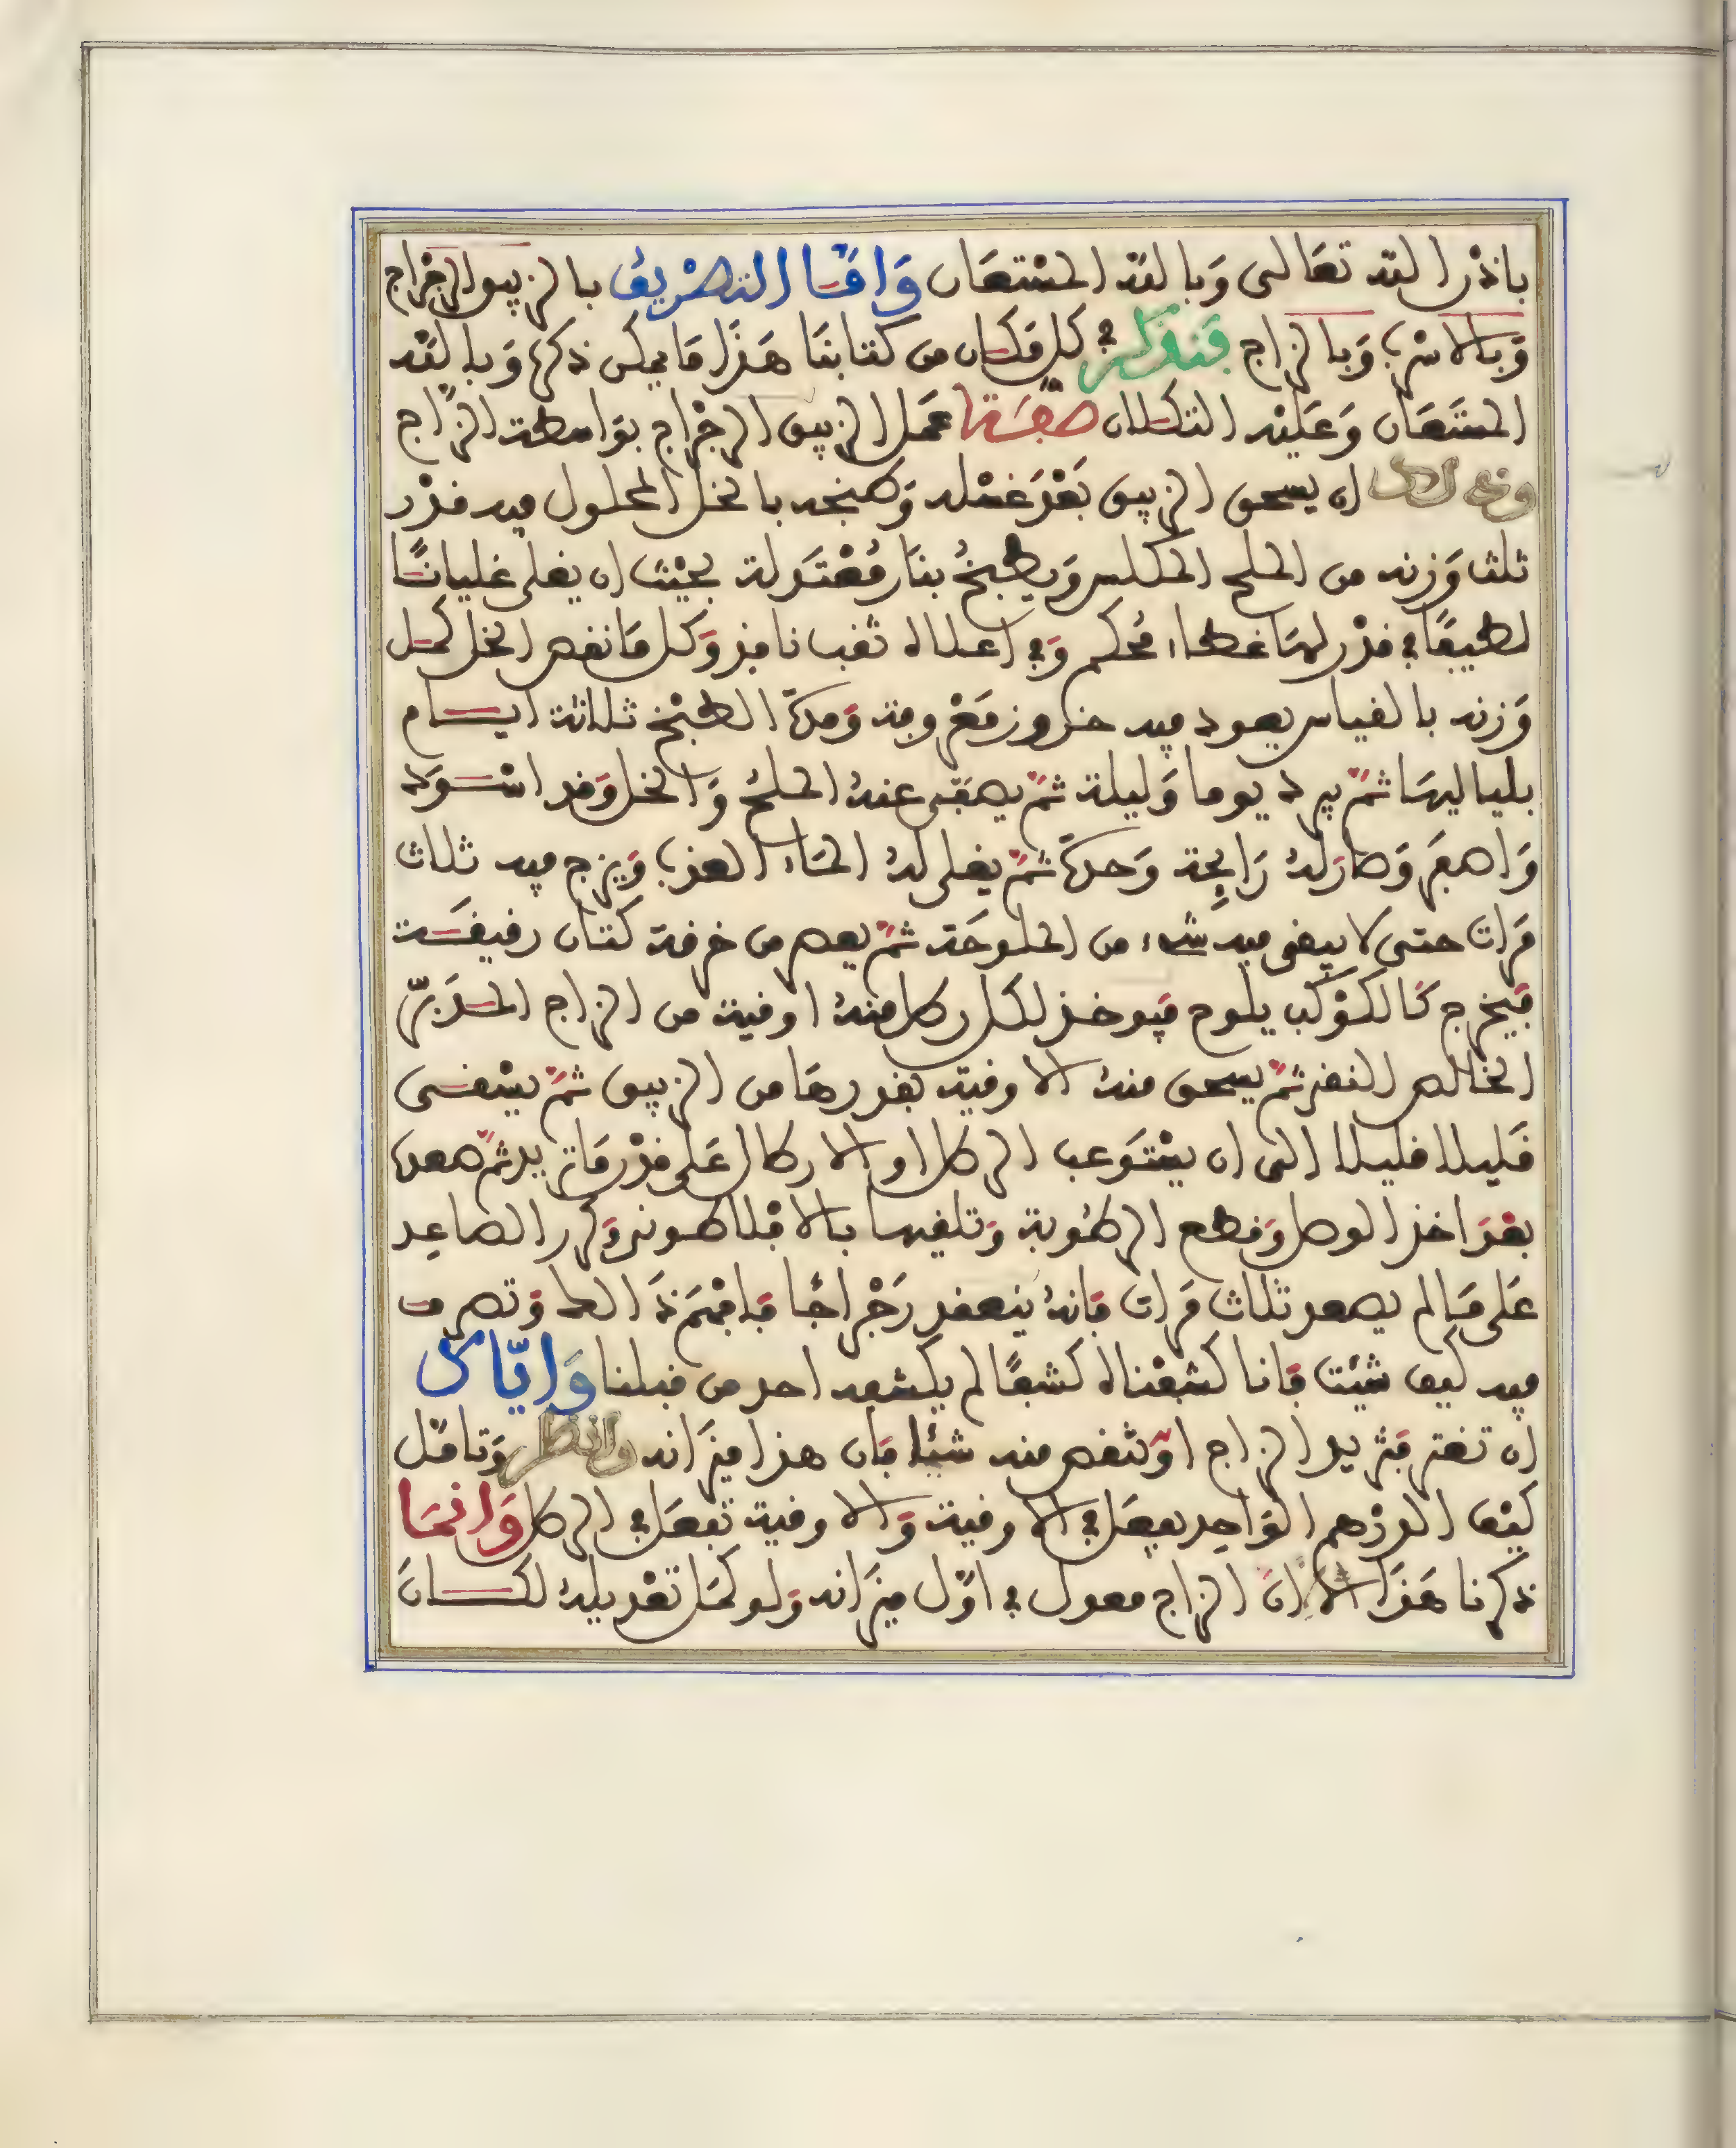 باذن الله تعالى وَبالله المستعان وَامّا التصريف بالزيبق الرجراج
وَبالاسرب وَبالزاج فنذكر في كل مَكان من كتابنَا هَذا مَا يمكن ذكره وَبالله
المستَعَان وَعَليْه التكلان صفة عمَل الزيبق الرجْراج بوَاسطة الزاج
وذلك ان يسحق الزيبق بَعْدَ غسْله وَطبخه بالخل المحلول فيه قدْر
ثلث وَزنه من الملح المكلس وَيطبخُ بنَار مُعْتَدلة بحيْث ان يغلى غليانًا
لطيفًا في قدْر لهَا غطاء مُحكم وَفي اعلاه ثقب نافذ وَكل مَا نقص الخل كمل
وَزنه بالقياس بعود فيه حزوز مَعْروفة وَمدّة الطبْخ ثلاثة ايام
بلياليهَا ثمّ يبرد يوما وَليلة ثمّ يصفى عنهُ الملحُ وَالخل وَقد اسْوَد
وَاصفَر وَصَار لهُ رَايحة وَحدّة ثمّ يغلى لهُ المَاء العذب وَيزج فيه ثلاث
مَرات حتى لا يبقى فيه شيء من الملوحَة ثمّ يعصر من خرقة كتان رقيقة
فيخرج كَالكوْكب يلوح فيوخذ لكل رطل منهُ اوقية من الزاج المدَبّر
الخالص النقى ثمّ يسحق منهُ الاوقية بقدرهَا من الزيبق ثمّ يسْقى
قَليلا قليلا الى ان يسْتَوعب الرطل او الارطال عَلى قدْر مَا تريد ثمّ صعده
بعْدَ اخذ الوصل وَقطع الرطُوبة وَتلقيها بالافلاطونى وَكرر الصاعِد
عَلى مَا لم يصعد ثلاث مَرات فَانهُ ينعقد رَجْراجًا فَافهَمْ ذَا العلم وَتصرف
فيه كيف شيْت فَانا كشفْناه كشفًا لم يكشفه احد من قبلنا وَايّاك
ان تغتر فتزيد الزاج اوْ تنقص منه شيْئا فَان هذا ميزَانه وانظر وَتامّل
كيْف الدرْهم الوَاحِد يفعَل في الاوقية وَالاوقية تفعَل في الرطل وَانمَا
ذكرنا هَذَا لان الزاج معول في اوّل ميزَانه وَلو كمَل تعْديلهُ لكَانَ